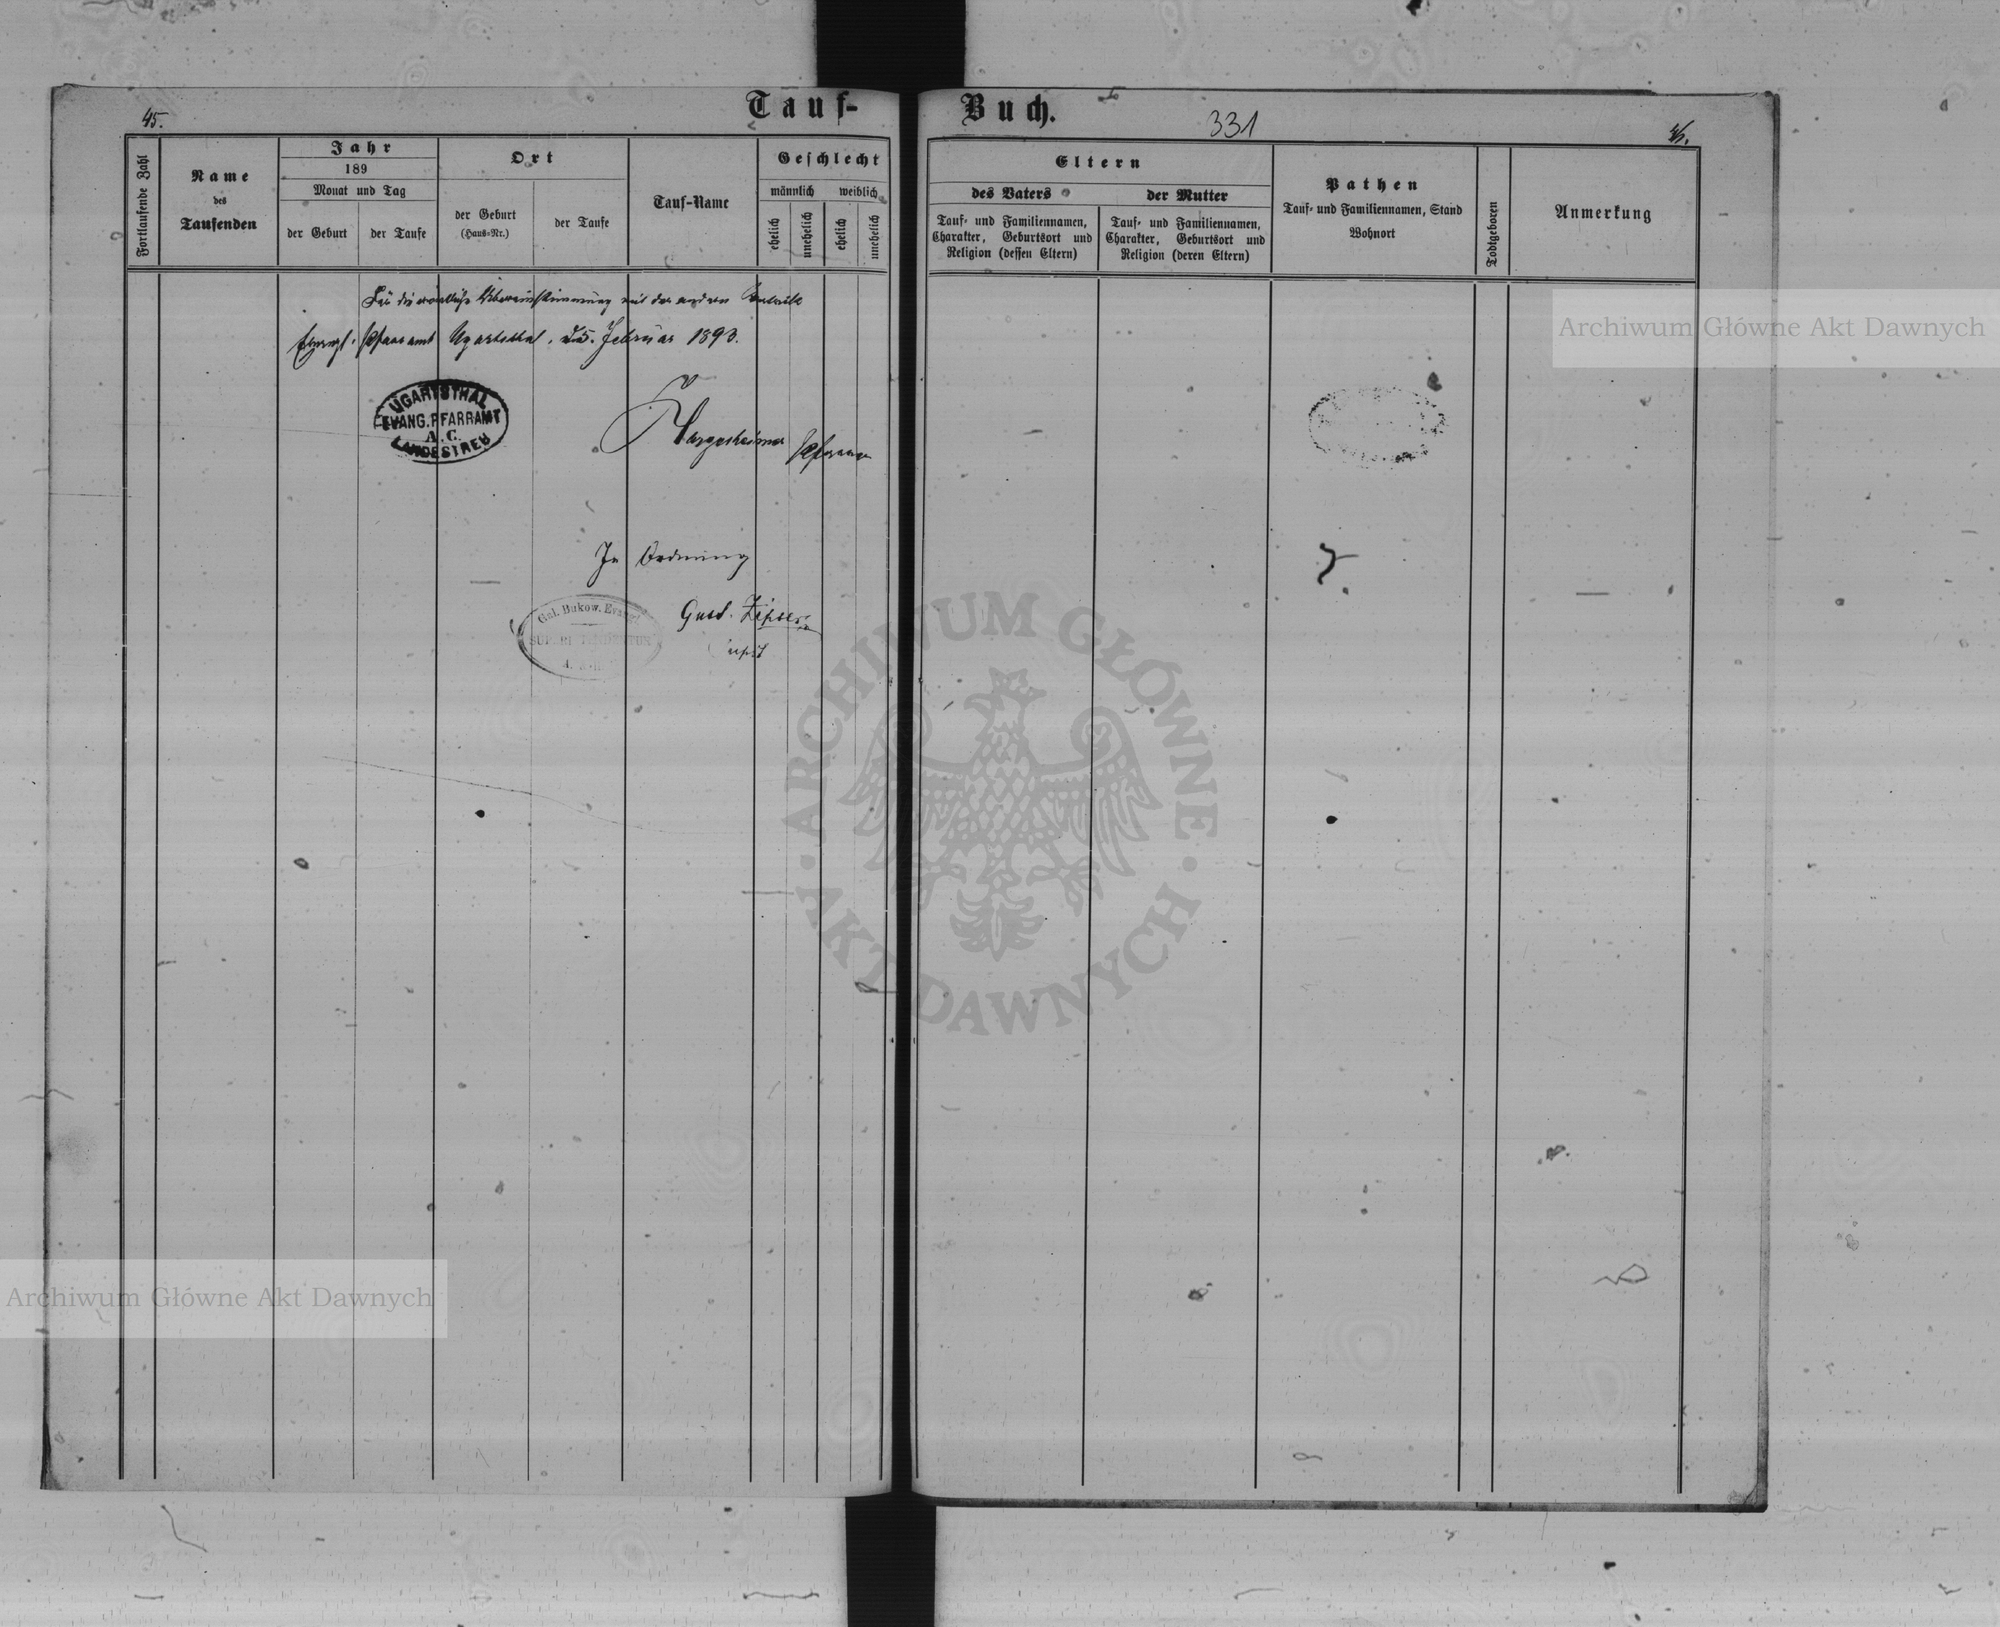 45.
Tauf-
Buch.
331
45.
Fortlaufende Zahl
Name
des
Taufenden
Jahr
189
Monat und Tag
der Geburt
der Taufe
Ort
der Geburt
(Haus-Nr.)
der Taufe
Tauf-Name
Geschlecht
männlich
weiblich
ehelich
unehelich
ehelich
unehelich
Eltern
des Vaters
der Mutter
Tauf- und Familiennamen,
Charakter, Geburtsort und
Religion (dessen Eltern)
Tauf- und Familiennamen,
Charakter, Geburtsort und
Religion (deren Eltern)
Pathen
Tauf- und Familiennamen, Stand
Wohnort
Todtgeboren
Anmerkung
Für die wörtliche Übereinstimmung mit der andern
Evangl. Pfarramt Ugartsthal, d. 5. Februar 1893.
UGARTSTHAL
EVANG. PFARRAMT
A. C.
LANDESTREU
Pfarrer
In Ordnung
Gal. Bukow. Evang.
Gust. Zipser
Archiwum Główne Akt Dawnych
ARCHIWUM GŁÓWNE
AKT DAWNYCH
Archiwum Główne Akt Dawnych